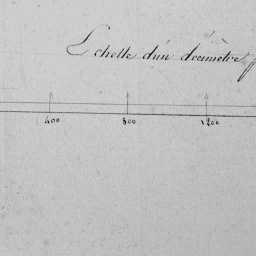 Echelle d'un décimètre
400 800 1200